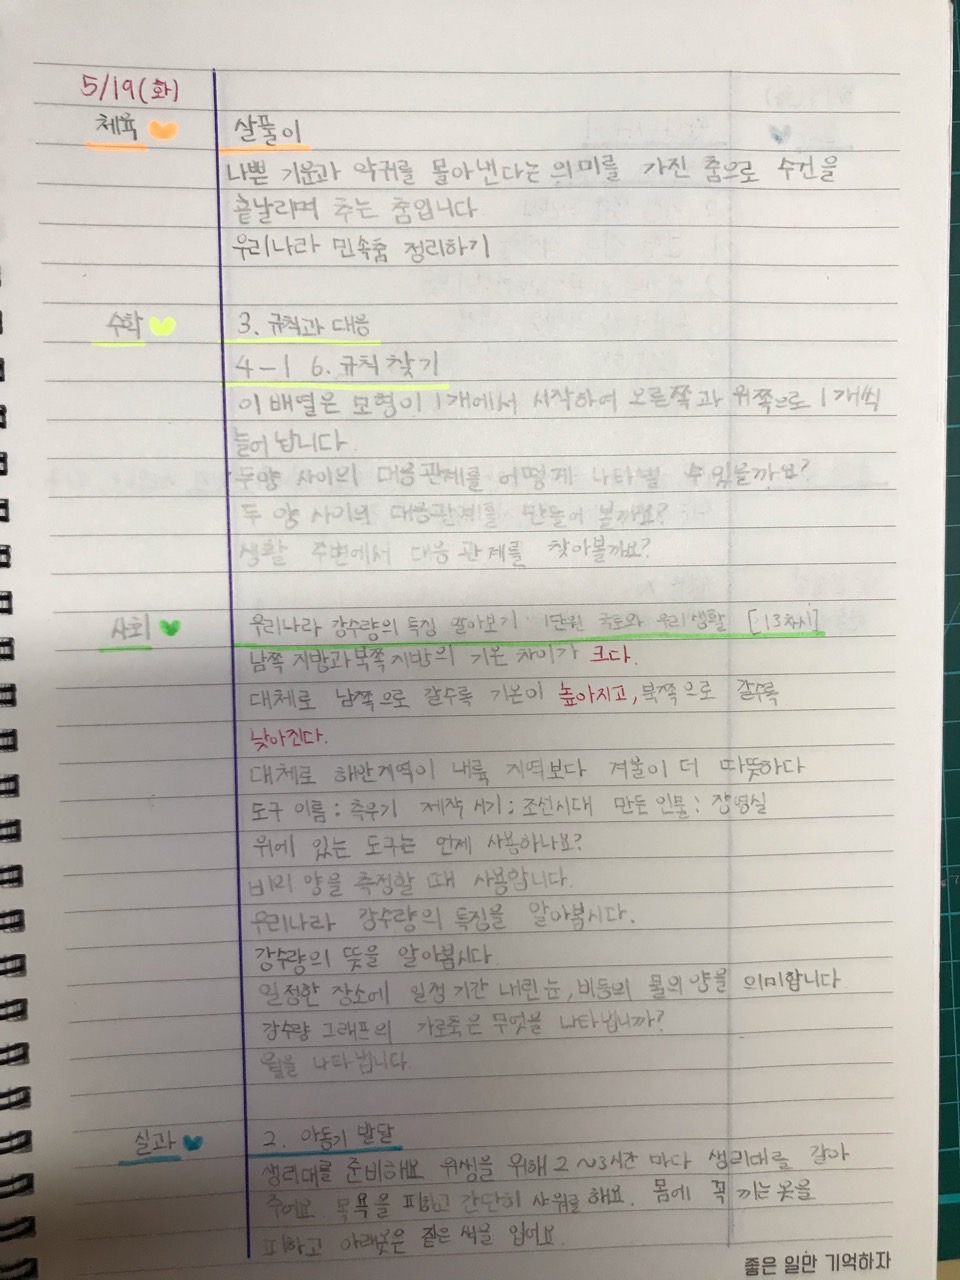 5/19(화)
체육 살풀이
나쁜 기운과 악귀를 몰아낸다는 의미를 가진 춤으로 수건을
흩날리며 추는 춤입니다.
우리나라 민속춤 정리하기
수학 3. 규칙과 대응
4-1 6. 규칙 찾기
이 배열은 모형이 1개에서 시작하여 오른쪽과 위쪽으로 1개씩
늘어 납니다.
두양 사이의 대응관계를 어떻게 나타낼 수 있을까요?
두 양 사이의 대응관계를 만들어 볼까요?
생활 주변에서 대응 관계를 찾아볼까요?
사회 우리나라 강수량의 특징 알아보기 1단원 국토와 우리생활 [13차시]
남쪽 지방과 북쪽 지방의 기온 차이가 크다.
대체로 남쪽으로 갈수록 기온이 높아지고, 북쪽으로 갈수록
낮아진다.
대체로 해안지역이 내륙 지역보다 겨울이 더 따뜻하다
도구 이름 : 측우기 제작 시기 : 조선시대 만든 인물 : 장영실
위에 있는 도구는 언제 사용하나요?
비의 양을 측정할 때 사용합니다.
우리나라 강수량의 특징을 알아봅시다.
강수량의 뜻을 알아봅시다.
일정한 장소에 일정 기간 내린 눈, 비등의 물의 양을 의미합니다
강수량 그래프의 가로축은 무엇을 나타냅니까?
월을 나타냅니다
실과 2. 아동기 발달
생리대를 준비해요 위생을 위해 2~3시간 마다 생리대를 갈아
주어요 목욕을 피하고 간단히 샤워를 해요. 몸에 꼭 끼는 옷을
피하고 아래옷은 짙은 색을 입어요.
좋은 일만 기억하자